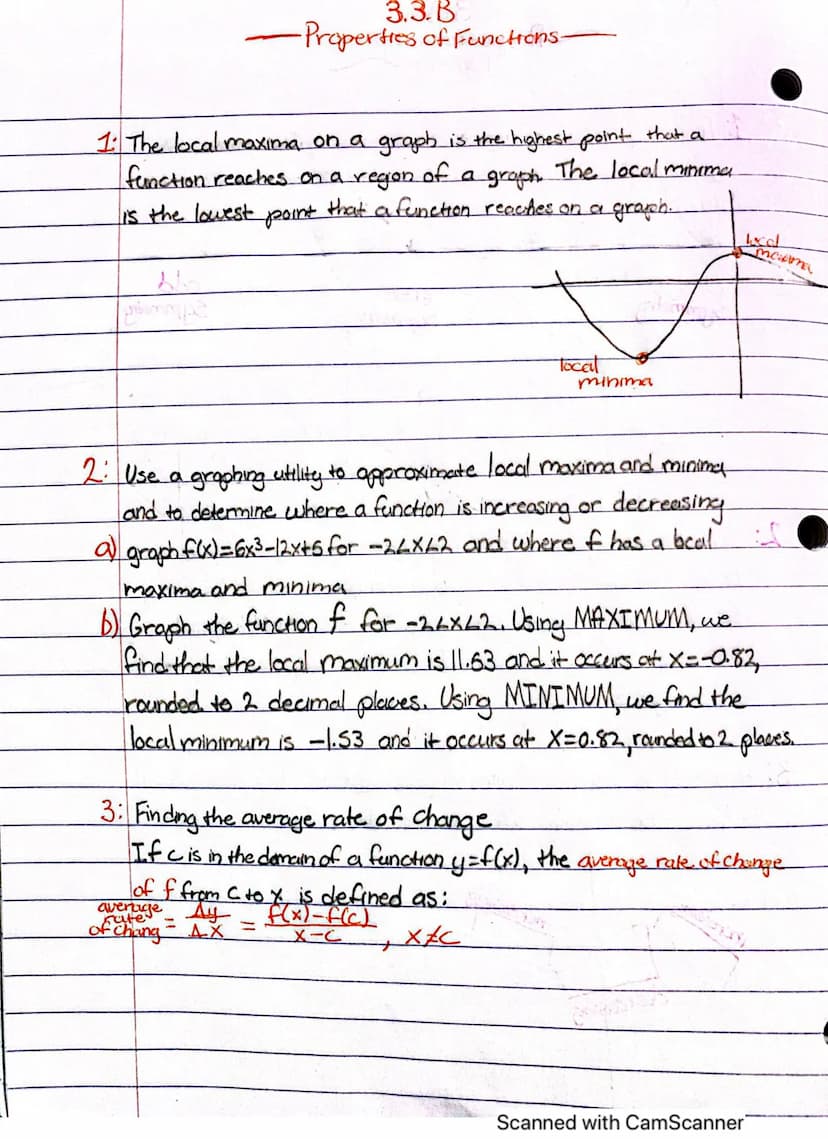 3.3.B
Properties of Functions
1: The local maxima on a graph is the highest point that a
function reaches on a region of a graph. The local minima
is the lowest point that a function reaches on a graph.
local
maxima
local
minima
2: Use a graphing utility to approximate local maxima and minima
and to determine where a function is increasing or decreasing
a) graph f(x)=6x³-12x+5 for -2<x<2 and where f has a local
maxima and minima
b) Graph the function f for -2<x<2. Using MAXIMUM, we
find that the local maximum is 11.53 and it occurs at x=-0.82,
rounded to 2 decimal places. Using MINIMUM, we find the
local minimum is -1.53 and it occurs at x=0.82, rounded to 2 places.
3: Finding the average rate of change
If c is in the domain of a function y=f(x), the average rate of change
of f from c to x is defined as:
average rate of chang = Δy/Δx = f(x)-f(c)/x-c , x≠c
Scanned with CamScanner